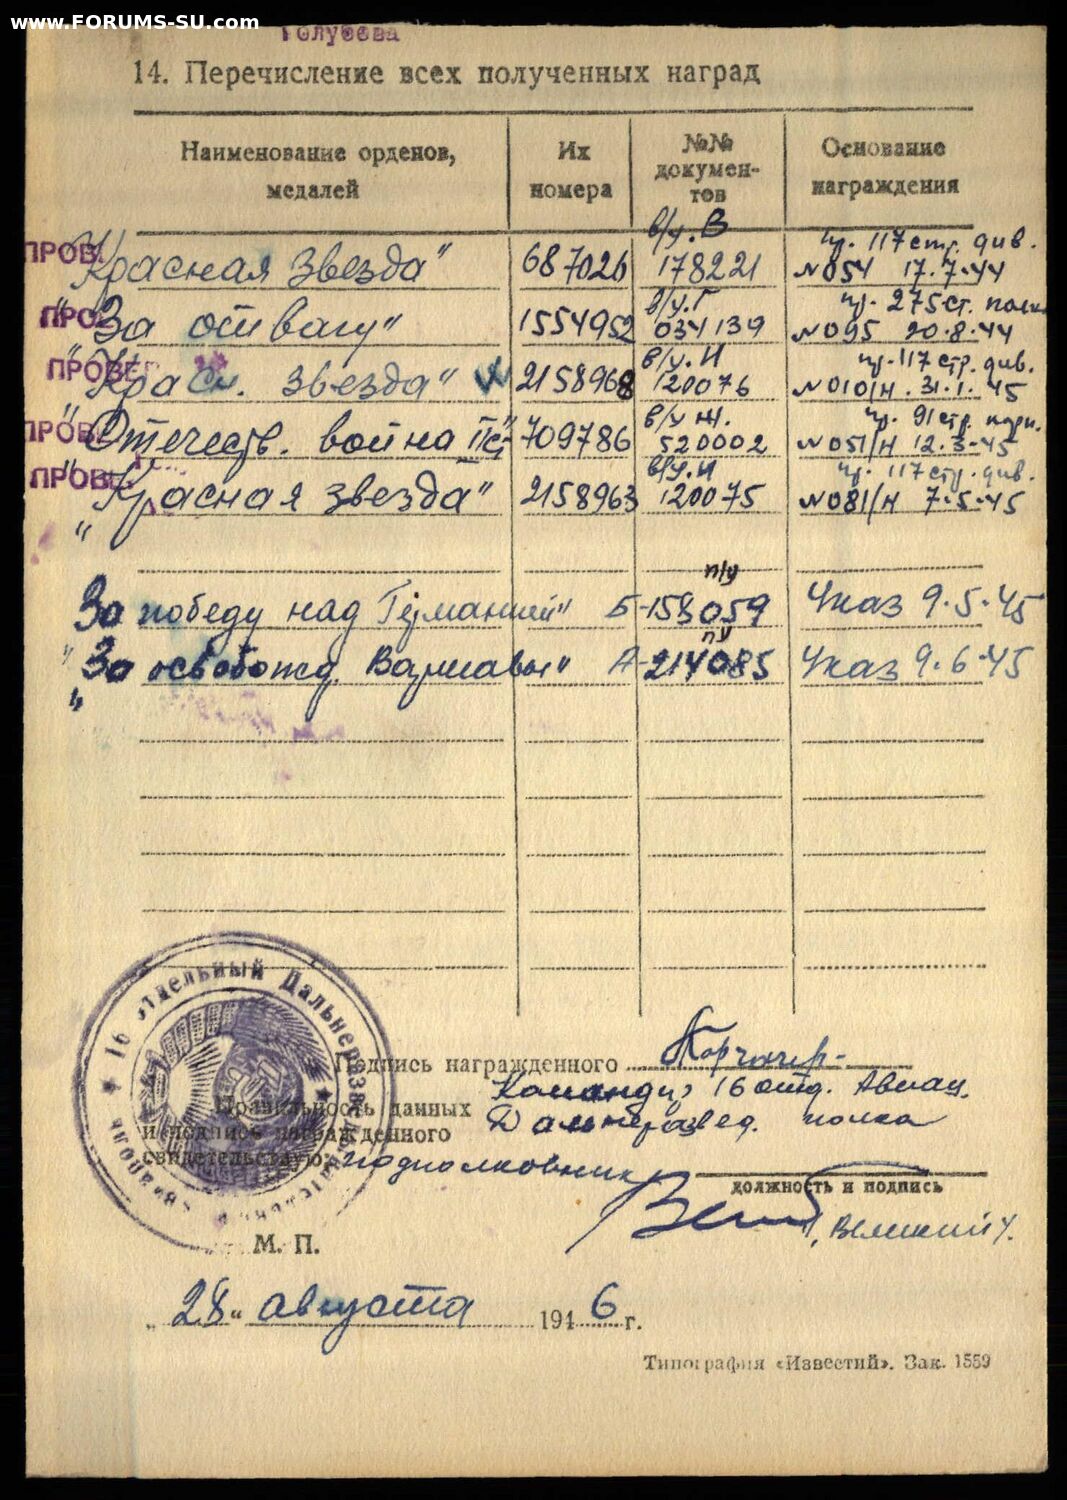 www.FORUMS-SU.com
Голубева
14. Перечисление всех полученных наград
Наименование орденов, медалей
Их номера
№№ документов
Основание награждения
ПРОВ. "Красная Звезда" 687026 в/у. В 178221 пр. 117 стр. див. №054 17.7.44
ПРО "За отвагу" 1554952 в/у. Г 034139 пр. 275 ст. полка №095 20.8.44
ПРОВЕР "Красн. звезда" 2158968 в/у. И 120076 пр. 117 стр. див. №010/н. 31.1.45
ПРОВ "Отечеств. война IIст" 709786 в/у Ж. 520002 пр. 91 стр. корп. №051/н 12.3.45
ПРОВ "Красная звезда" 2158963 в/у. И 120075 пр. 117 стр. див. №081/н 7.5.45
"За победу над Германией" п/у Б-158059 Указ 9.5.45
"За освобожд. Варшавы" пу А-214085 Указ 9.6.45
16 отдельный Дальнеразведывательный
Подпись награжденного
Командир 16 отд. Авиац.
Правильность данных
Дальнеразвед. полка
и подпись награжденного
свидетельствую: подполковник
должность и подпись
М. П.
"28" августа 1946 г.
Типография «Известий». Зак. 1559